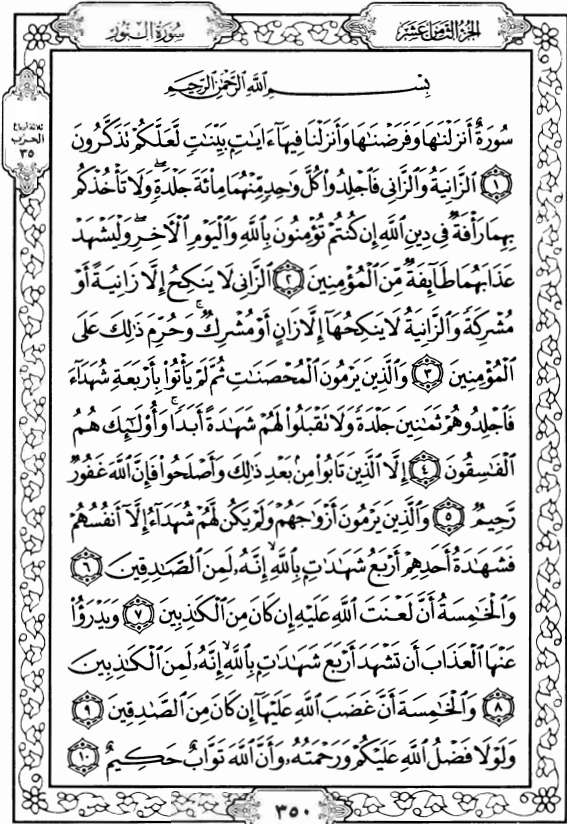 الجزء الثامن عشر
سورة النور
ثلاثة أرباع
الحزب
٣٥
بِسْمِ اللَّهِ الرَّحْمَٰنِ الرَّحِيمِ
سُورَةٌ أَنزَلْنَٰهَا وَفَرَضْنَٰهَا وَأَنزَلْنَا فِيهَآ ءَايَٰتٍۭ بَيِّنَٰتٍ لَّعَلَّكُمْ تَذَكَّرُونَ
١ الزَّانِيَةُ وَالزَّانِي فَاجْلِدُوا۟ كُلَّ وَٰحِدٍ مِّنْهُمَا مِا۟ئَةَ جَلْدَةٍ ۖ وَلَا تَأْخُذْكُم
بِهِمَا رَأْفَةٌ فِي دِينِ اللَّهِ إِن كُنتُمْ تُؤْمِنُونَ بِاللَّهِ وَالْيَوْمِ الْآخِرِ ۖ وَلْيَشْهَدْ
عَذَابَهُمَا طَآئِفَةٌ مِّنَ الْمُؤْمِنِينَ ٢ الزَّانِي لَا يَنكِحُ إِلَّا زَانِيَةً أَوْ
مُشْرِكَةً وَالزَّانِيَةُ لَا يَنكِحُهَآ إِلَّا زَانٍ أَوْ مُشْرِكٌ ۚ وَحُرِّمَ ذَٰلِكَ عَلَى
الْمُؤْمِنِينَ ٣ وَالَّذِينَ يَرْمُونَ الْمُحْصَنَٰتِ ثُمَّ لَمْ يَأْتُوا۟ بِأَرْبَعَةِ شُهَدَآءَ
فَاجْلِدُوهُمْ ثَمَٰنِينَ جَلْدَةً وَلَا تَقْبَلُوا۟ لَهُمْ شَهَٰدَةً أَبَدًا ۚ وَأُو۟لَٰٓئِكَ هُمُ
الْفَٰسِقُونَ ٤ إِلَّا الَّذِينَ تَابُوا۟ مِنۢ بَعْدِ ذَٰلِكَ وَأَصْلَحُوا۟ فَإِنَّ اللَّهَ غَفُورٌ
رَّحِيمٌ ٥ وَالَّذِينَ يَرْمُونَ أَزْوَٰجَهُمْ وَلَمْ يَكُن لَّهُمْ شُهَدَآءُ إِلَّآ أَنفُسُهُمْ
فَشَهَٰدَةُ أَحَدِهِمْ أَرْبَعُ شَهَٰدَٰتٍۭ بِاللَّهِ ۙ إِنَّهُۥ لَمِنَ الصَّٰدِقِينَ ٦
وَالْخَٰمِسَةُ أَنَّ لَعْنَتَ اللَّهِ عَلَيْهِ إِن كَانَ مِنَ الْكَٰذِبِينَ ٧ وَيَدْرَؤُا۟
عَنْهَا الْعَذَابَ أَن تَشْهَدَ أَرْبَعَ شَهَٰدَٰتٍۭ بِاللَّهِ ۙ إِنَّهُۥ لَمِنَ الْكَٰذِبِينَ
٨ وَالْخَٰمِسَةَ أَنَّ غَضَبَ اللَّهِ عَلَيْهَآ إِن كَانَ مِنَ الصَّٰدِقِينَ ٩
وَلَوْلَا فَضْلُ اللَّهِ عَلَيْكُمْ وَرَحْمَتُهُۥ وَأَنَّ اللَّهَ تَوَّابٌ حَكِيمٌ ١٠
٣٥٠